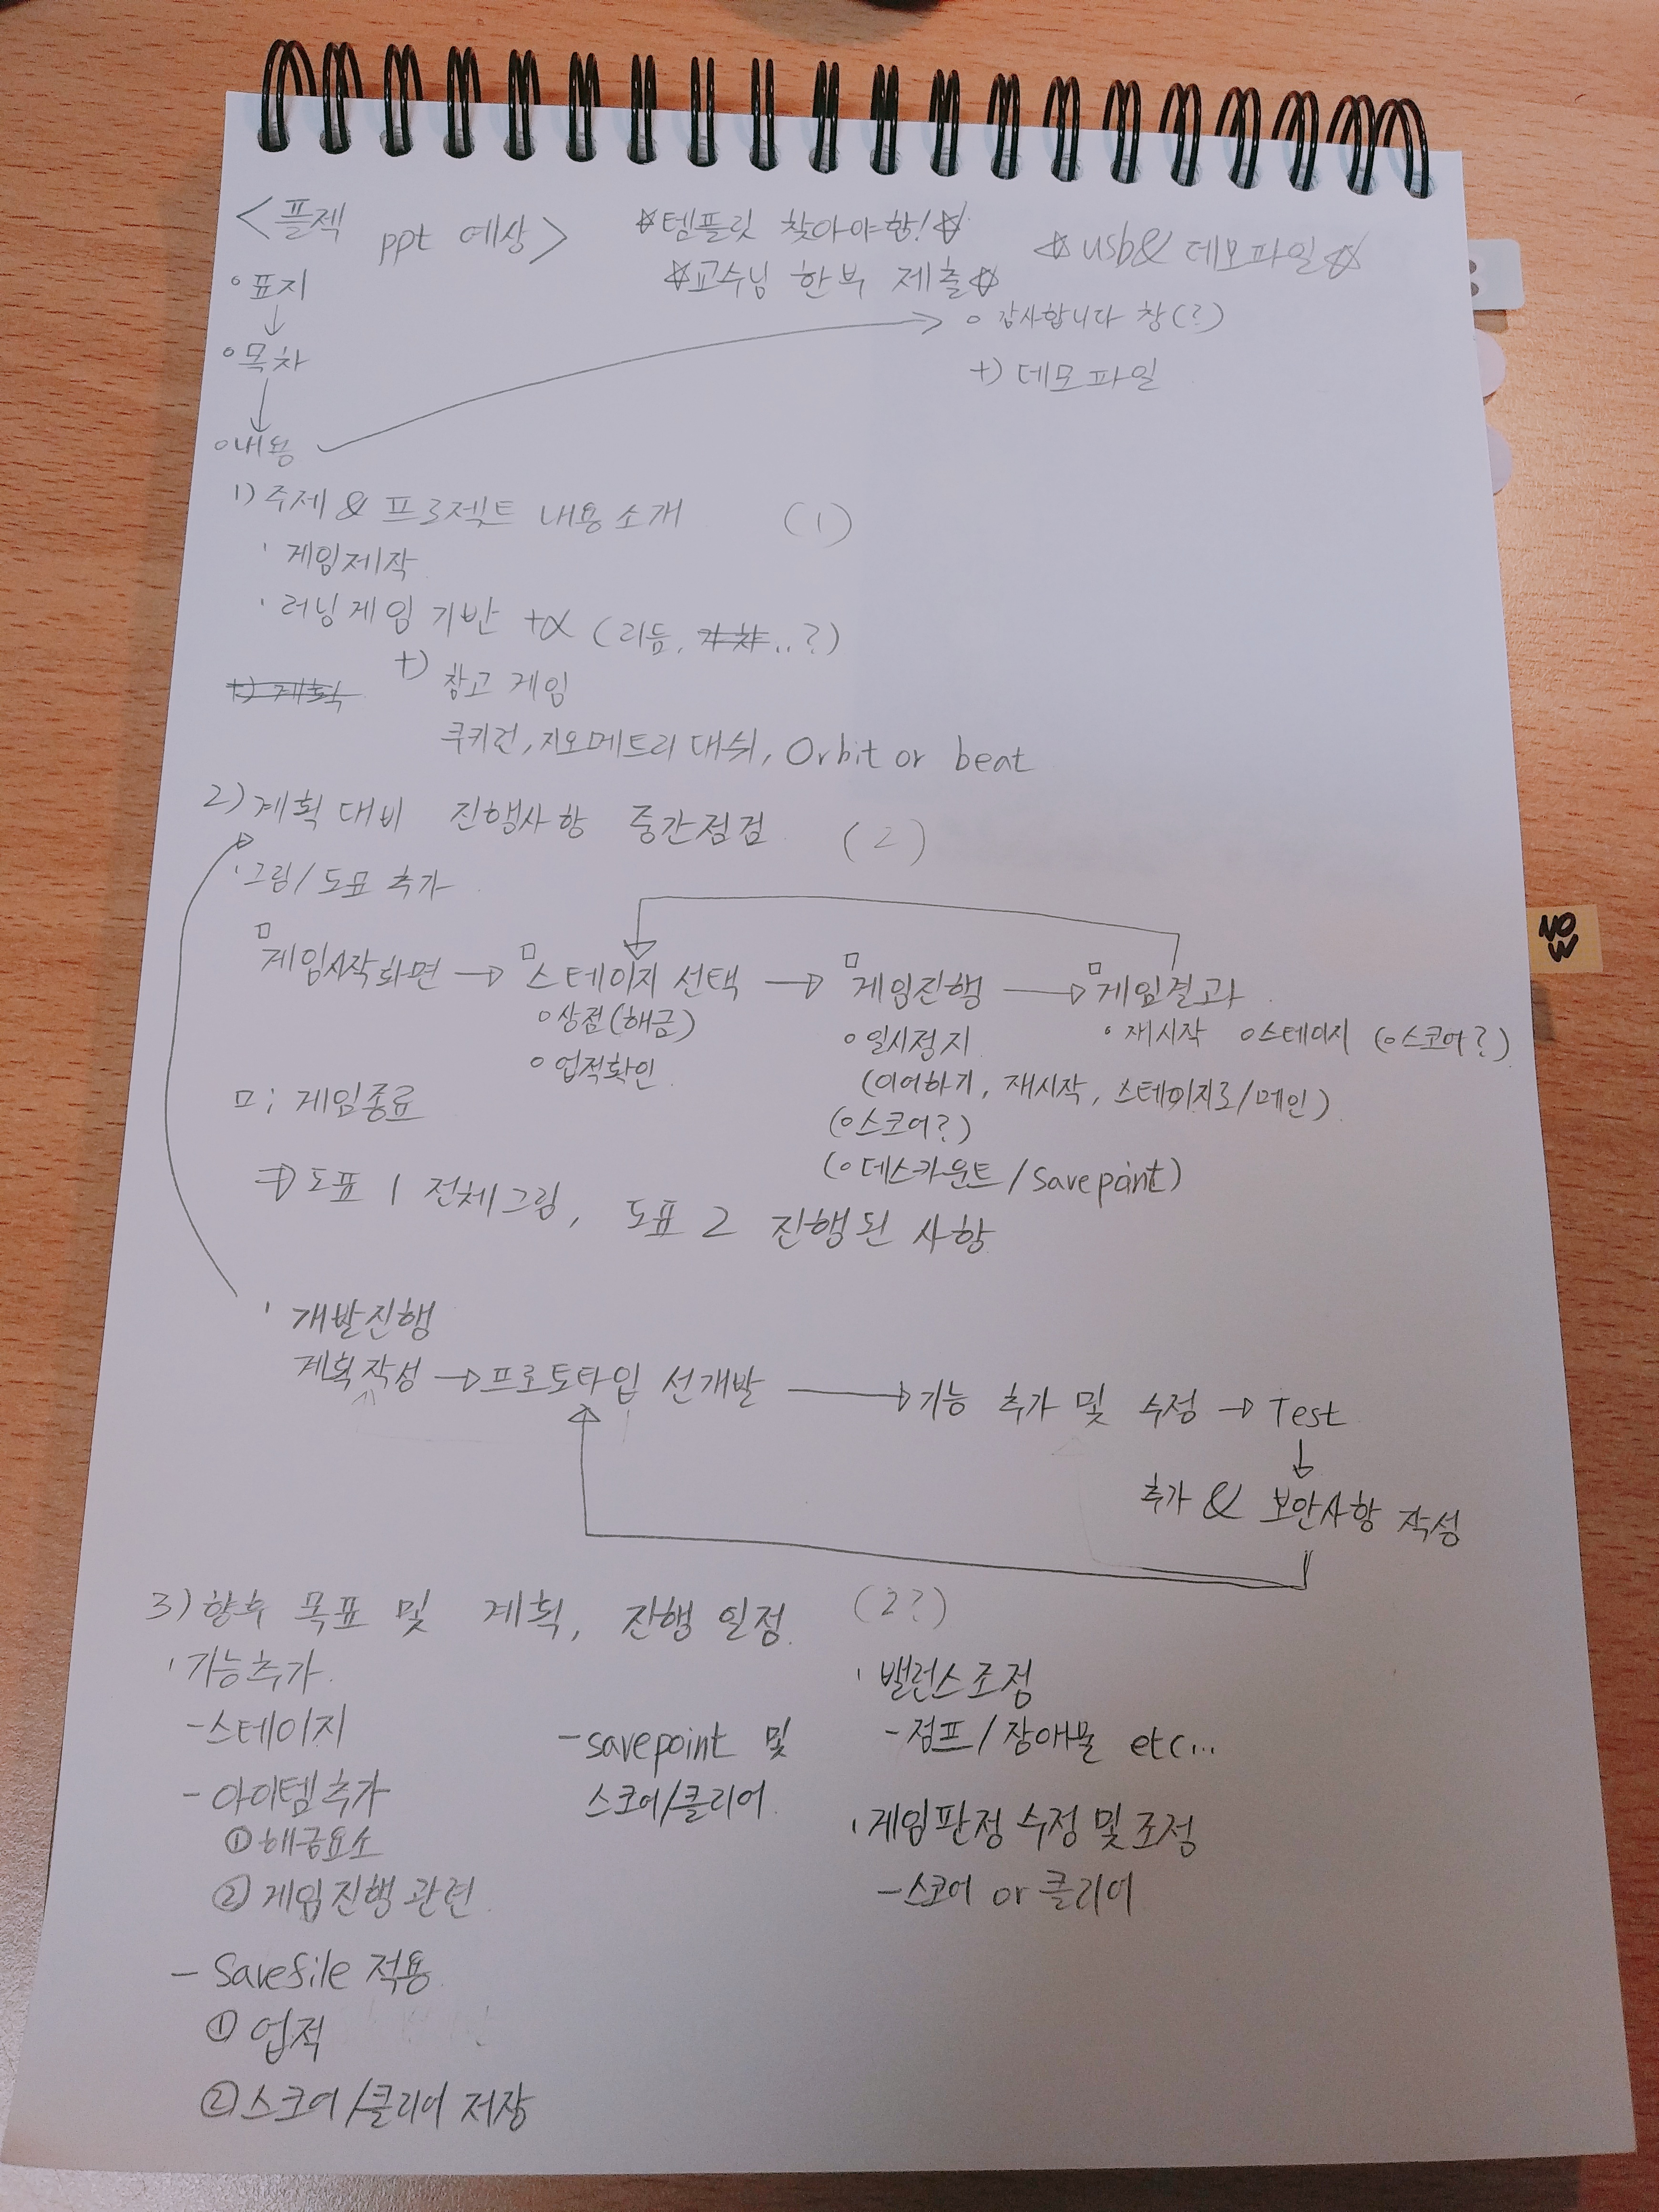 <플젝 ppt 예상>
☆템플릿 찾아야함!☆
☆교수님 한부 제출☆
☆usb& 데모파일☆
○표지
↓
○목차
↓
○내용 → ○ 감사합니다 창(?)
+) 데모파일
1) 주제 & 프로젝트 내용소개 (1)
' 게임제작
' 러닝게임 기반 +α (리듬, 가챠..?)
+) 계획
+) 참고 게임
쿠키런, 지오메트리 대쉬, Orbit or beat
2) 계획 대비 진행사항 중간점검 (2)
' 그림/도표 추가
□게임시작화면 → □스테이지 선택 → □게임진행 → □게임결과
○상점(해금)
○업적확인
○일시정지
(이어하기, 재시작, 스테이지로/메인)
(○스코어?)
(○데스카운트/savepoint)
○재시작 ○스테이지 (○스코어?)
□; 게임종료
⇒ 도표 1 전체그림, 도표 2 진행된 사항
' 개발진행
계획작성 → 프로토타입 선개발 → 기능 추가 및 수정 → Test
↓
추가 & 보안사항 작성
3) 향후 목표 및 계획, 진행 일정 (2?)
' 기능추가
-스테이지
- 아이템추가
① 해금요소
② 게임진행 관련
- Savefile 적용
① 업적
② 스코어/클리어 저장
-savepoint 및
스코어/클리어
' 밸런스조정
- 점프/장애물 etc...
' 게임판정 수정 및 조정
-스코어 or 클리어
NO
W